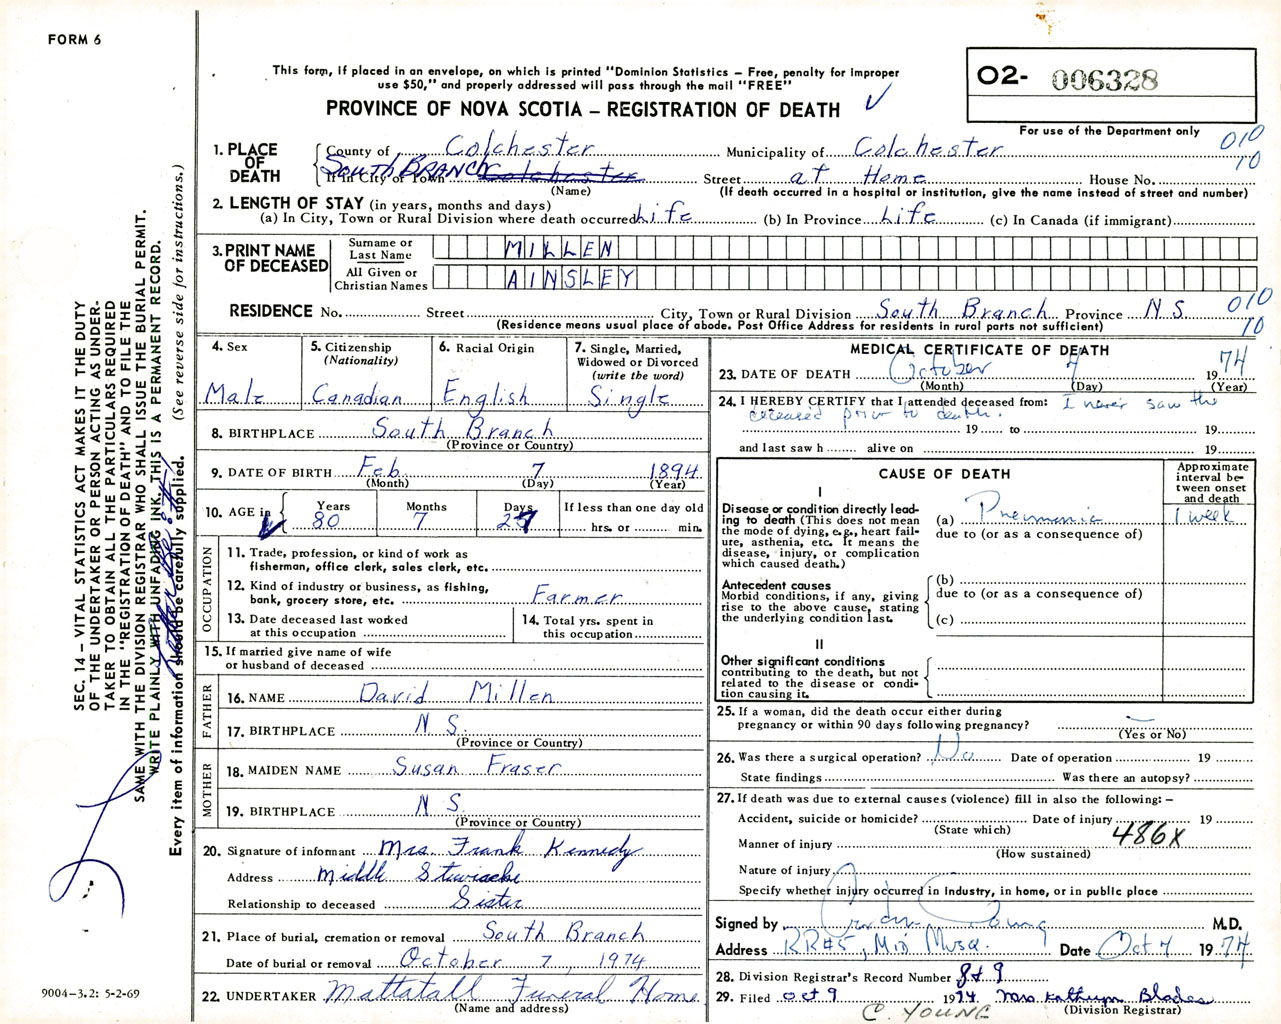 FORM 6
This form, if placed in an envelope, on which is printed "Dominion Statistics – Free, penalty for improper
use $50," and properly addressed will pass through the mail "FREE"
PROVINCE OF NOVA SCOTIA – REGISTRATION OF DEATH
02- 006328
For use of the Department only
010
10
1. PLACE OF DEATH
County of Colchester Municipality of Colchester
If in City or Town South BRANCH Colchester Street at Home House No.
(Name) (If death occurred in a hospital or institution, give the name instead of street and number)
2. LENGTH OF STAY (in years, months and days)
(a) In City, Town or Rural Division where death occurred Life (b) In Province Life (c) In Canada (if immigrant)
3. PRINT NAME OF DECEASED
Surname or Last Name MILLEN
All Given or Christian Names AINSLEY
RESIDENCE No. Street City, Town or Rural Division South Branch Province N S. 010
(Residence means usual place of abode. Post Office Address for residents in rural parts not sufficient) 10
4. Sex
Male
5. Citizenship
(Nationality)
Canadian
6. Racial Origin
English
7. Single, Married,
Widowed or Divorced
(write the word)
Single
8. BIRTHPLACE South Branch
(Province or Country)
9. DATE OF BIRTH Feb 7 1894
(Month) (Day) (Year)
10. AGE in
Years 80
Months 7
Days
If less than one day old
hrs. or min.
OCCUPATION
11. Trade, profession, or kind of work as
fisherman, office clerk, sales clerk, etc.
12. Kind of industry or business, as fishing,
bank, grocery store, etc. Farmer
13. Date deceased last worked
at this occupation
14. Total yrs. spent in
this occupation
15. If married give name of wife
or husband of deceased
FATHER
16. NAME David Millen
17. BIRTHPLACE N S.
(Province or Country)
MOTHER
18. MAIDEN NAME Susan Fraser
19. BIRTHPLACE N S.
(Province or Country)
20. Signature of informant Mrs. Frank Kennedy
Address Middle Stewiacke
Relationship to deceased Sister
21. Place of burial, cremation or removal South Branch
Date of burial or removal October 7, 1974
22. UNDERTAKER Mattatall Funeral Home
(Name and address)
MEDICAL CERTIFICATE OF DEATH
23. DATE OF DEATH October 7 1974
(Month) (Day) (Year)
24. I HEREBY CERTIFY that I attended deceased from: I never saw the
deceased prior to death.
19 to 19
and last saw h alive on 19
CAUSE OF DEATH
Approximate
interval be-
tween onset
and death
I
Disease or condition directly lead-
ing to death (This does not mean
the mode of dying, e.g., heart fail-
ure, asthenia, etc. It means the
disease, injury, or complication
which caused death.)
(a) Pneumonia 1 week
due to (or as a consequence of)
Antecedent causes
Morbid conditions, if any, giving
rise to the above cause, stating
the underlying condition last.
(b)
due to (or as a consequence of)
(c)
II
Other significant conditions
contributing to the death, but not
related to the disease or condi-
tion causing it.
25. If a woman, did the death occur either during
pregnancy or within 90 days following pregnancy? –
(Yes or No)
26. Was there a surgical operation? No Date of operation 19
State findings Was there an autopsy?
27. If death was due to external causes (violence) fill in also the following: –
Accident, suicide or homicide? Date of injury 19
(State which)
Manner of injury 486X
(How sustained)
Nature of injury
Specify whether injury occurred in industry, in home, or in public place
Signed by Young M.D.
Address RR#5, Mid Musq. Date Oct 7 1974
28. Division Registrar's Record Number
29. Filed Oct 9 1974 Mrs Kathryn Blades
(Division Registrar)
C. YOUNG
SEC. 14 – VITAL STATISTICS ACT MAKES IT THE DUTY
OF THE UNDERTAKER OR PERSON ACTING AS UNDER-
TAKER TO OBTAIN ALL THE PARTICULARS REQUIRED
IN THE "REGISTRATION OF DEATH" AND TO FILE THE
SAME WITH THE DIVISION REGISTRAR WHO SHALL ISSUE THE BURIAL PERMIT.
WRITE PLAINLY WITH UNFADING INK. THIS IS A PERMANENT RECORD.
Every item of information should be carefully supplied. (See reverse side for instructions.)
9004-3.2: 5-2-69